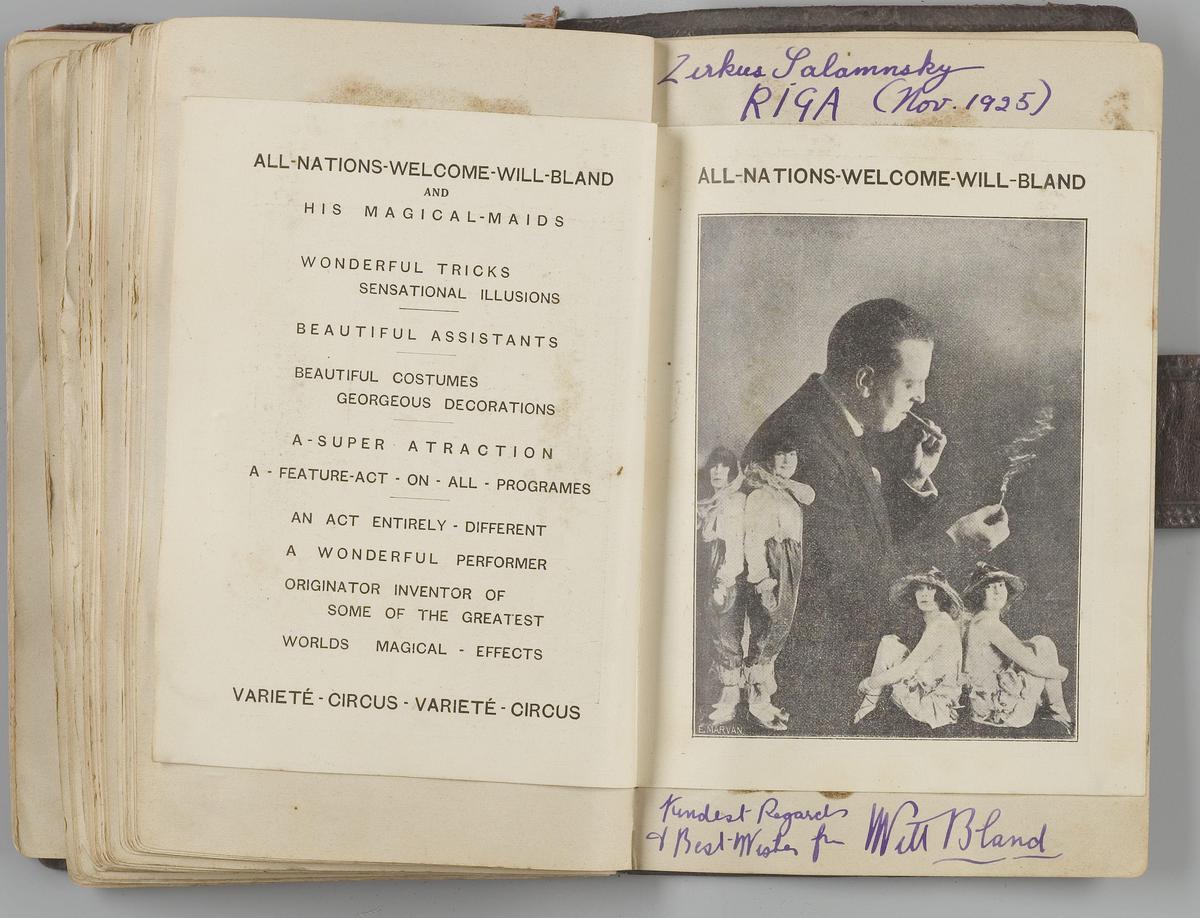 ALL-NATIONS-WELCOME-WILL-BLAND
AND
HIS MAGICAL-MAIDS
WONDERFUL TRICKS
SENSATIONAL ILLUSIONS
BEAUTIFUL ASSISTANTS
BEAUTIFUL COSTUMES
GEORGEOUS DECORATIONS
A-SUPER ATRACTION
A - FEATURE-ACT - ON - ALL - PROGRAMES
AN ACT ENTIRELY - DIFFERENT
A WONDERFUL PERFORMER
ORIGINATOR INVENTOR OF
SOME OF THE GREATEST
WORLDS MAGICAL - EFFECTS
VARIETÉ - CIRCUS - VARIETÉ - CIRCUS
Zirkus Salamnsky
RIGA (Nov. 1925)
ALL-NATIONS-WELCOME-WILL-BLAND
E. MARVAN
Kindest Regards
& Best-Wishes fm Will Bland